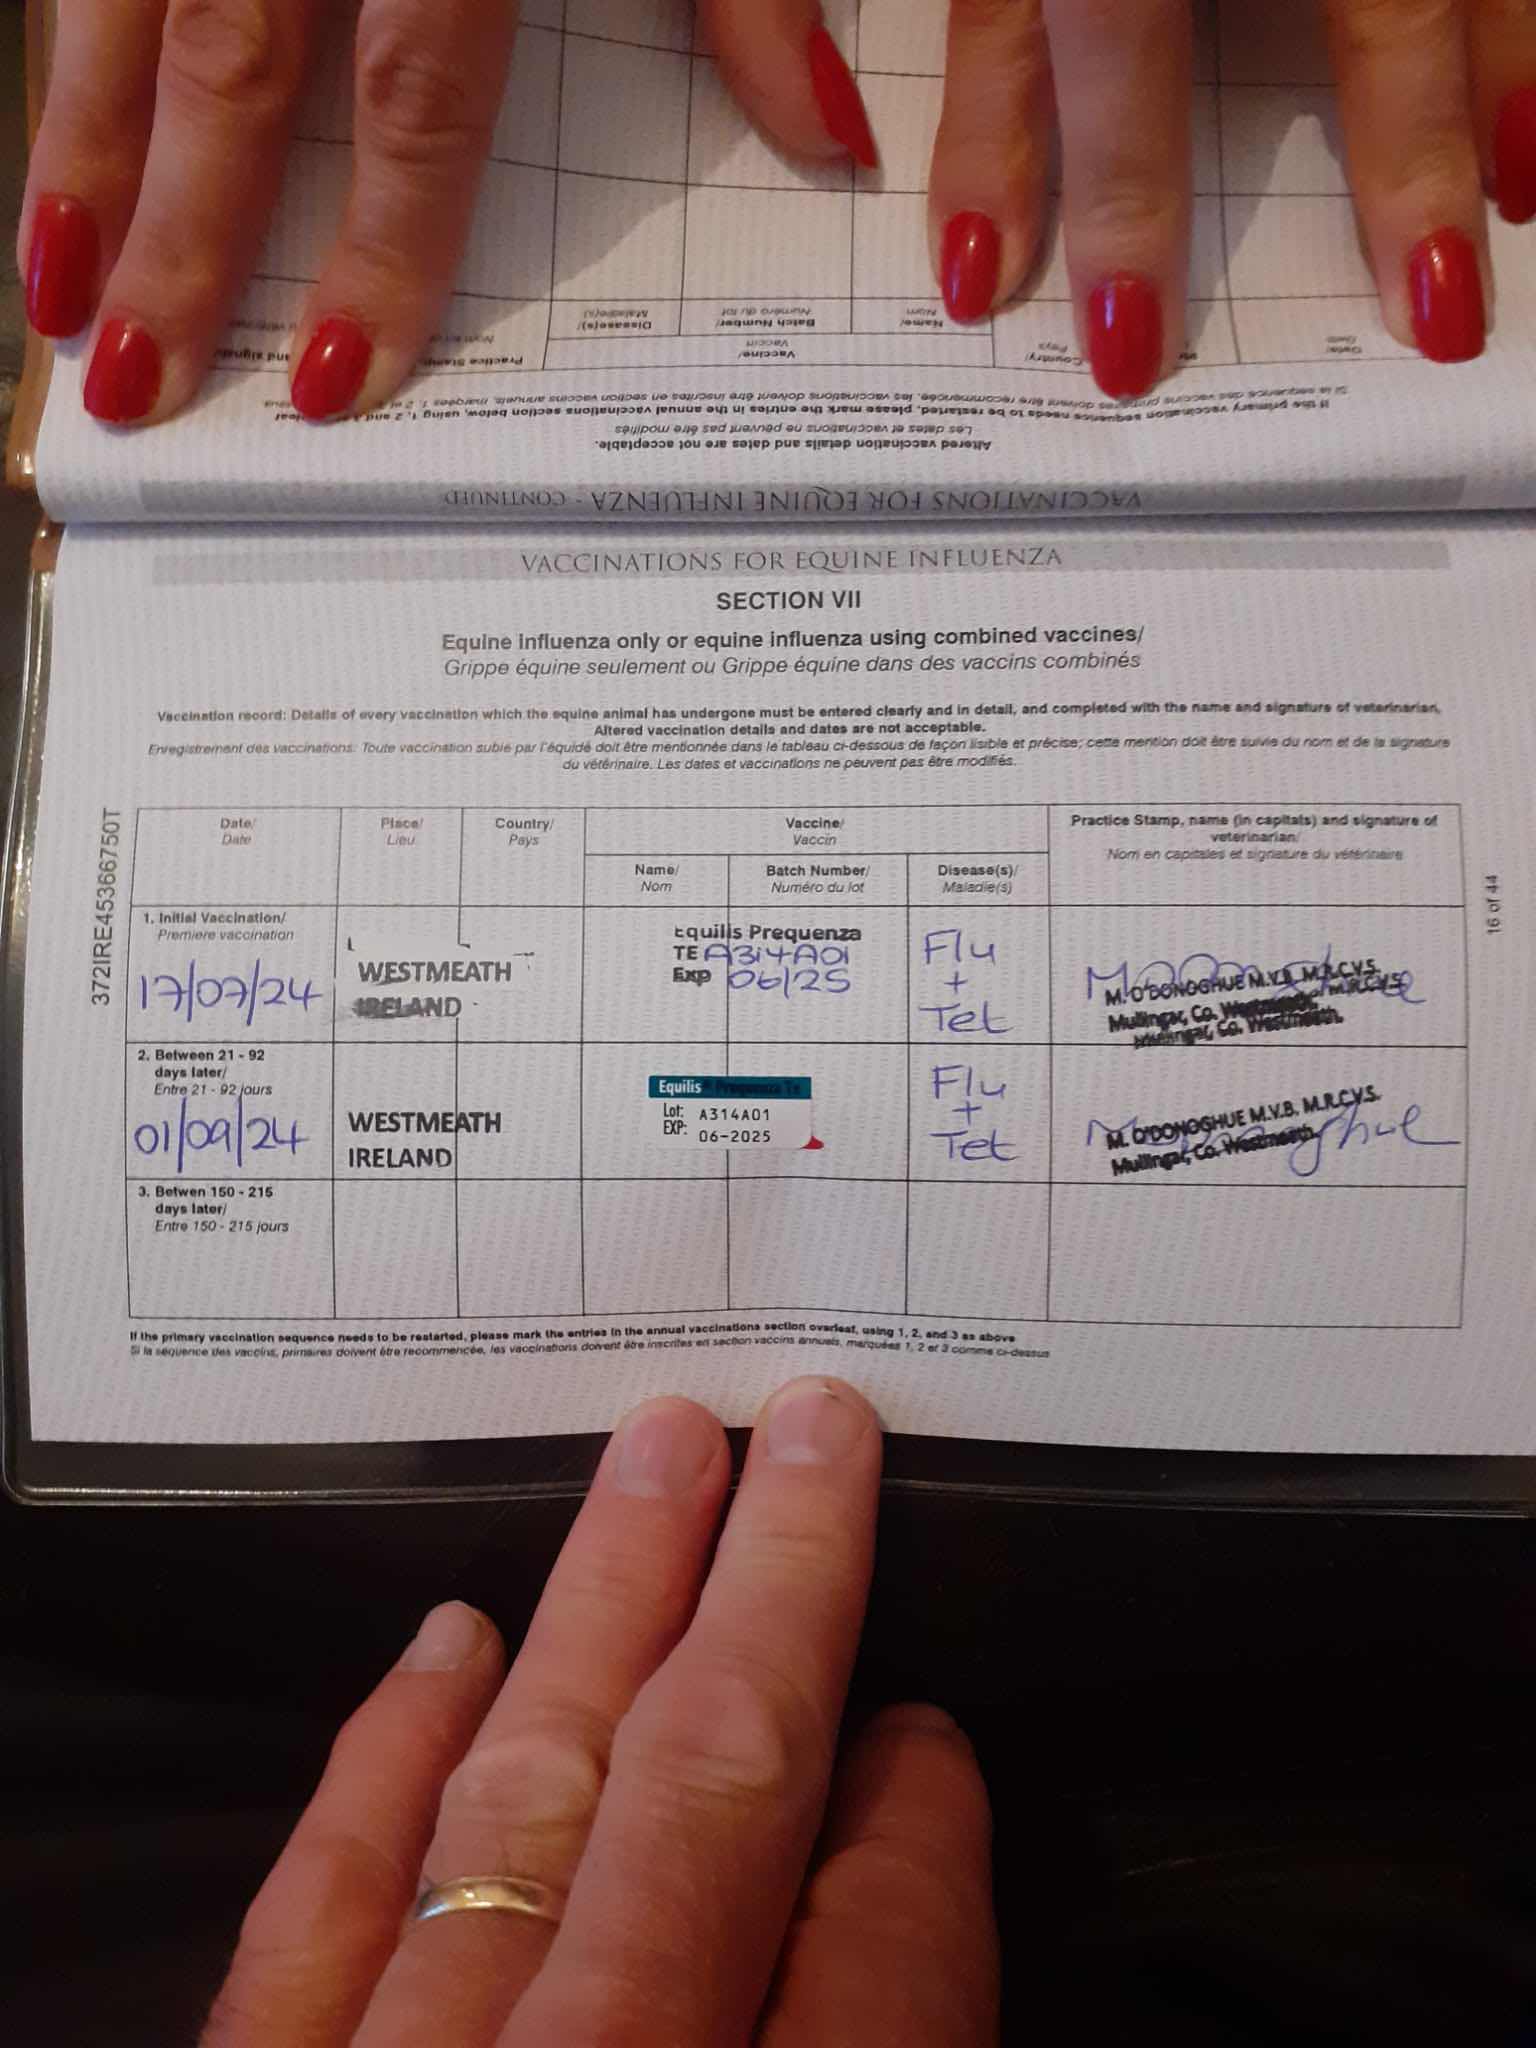 Practice Stamp,
and signa
Vaccine/
Vaccin
Country/
Pays
Date/
Date
Disease(s)/
Maladie(s)
Batch Number/
Numéro du lot
Name/
Nom
If the primary vaccination sequence needs to be restarted, please mark the entries in the annual vaccinations section below, using 1, 2 and
Altered vaccination details and dates are not acceptable.
Les dates et vaccinations ne peuvent pas être modifiés
VACCINATIONS FOR EQUINE INFLUENZA - CONTINUED
VACCINATIONS FOR EQUINE INFLUENZA
SECTION VII
Equine influenza only or equine influenza using combined vaccines/
Grippe équine seulement ou Grippe équine dans des vaccins combinés
Vaccination record: Details of every vaccination which the equine animal has undergone must be entered clearly and in detail, and completed with the name and signature of veterinarian.
Altered vaccination details and dates are not acceptable.
Enregistrement des vaccinations: Toute vaccination subie par l'équidé doit être mentionnée dans le tableau ci-dessous de façon lisible et précise; cette mention doit être suivie du nom et de la signature
du vétérinaire. Les dates et vaccinations ne peuvent pas être modifiés.
372IRE45366750T
16 of 44
Date/
Date
Place/
Lieu
Country/
Pays
Vaccine/
Vaccin
Practice Stamp, name (in capitals) and signature of
veterinarian/
Nom en capitales et signature du vétérinaire
Name/
Nom
Batch Number/
Numéro du lot
Disease(s)/
Maladie(s)
1. Initial Vaccination/
Premiere vaccination
17/07/24
WESTMEATH
IRELAND
Equilis Prequenza
TE A314A01
Exp 06/25
Flu
+
Tet
M. O'DONOGHUE M.V.B. M.R.C.V.S.
Mullingar, Co. Westmeath.
2. Between 21 - 92
days later/
Entre 21 - 92 jours
01/09/24
WESTMEATH
IRELAND
Equilis Prequenza Te
Lot: A314A01
EXP: 06-2025
Flu
+
Tet
M. O'DONOGHUE M.V.B. M.R.C.V.S.
Mullingar, Co. Westmeath.
3. Betwen 150 - 215
days later/
Entre 150 - 215 jours
If the primary vaccination sequence needs to be restarted, please mark the entries in the annual vaccinations section overleaf, using 1, 2, and 3 as above
Si la séquence des vaccins, primaires doivent être recommencée, les vaccinations doivent être inscrites en section vaccins annuels, marquées 1, 2 et 3 comme ci-dessus